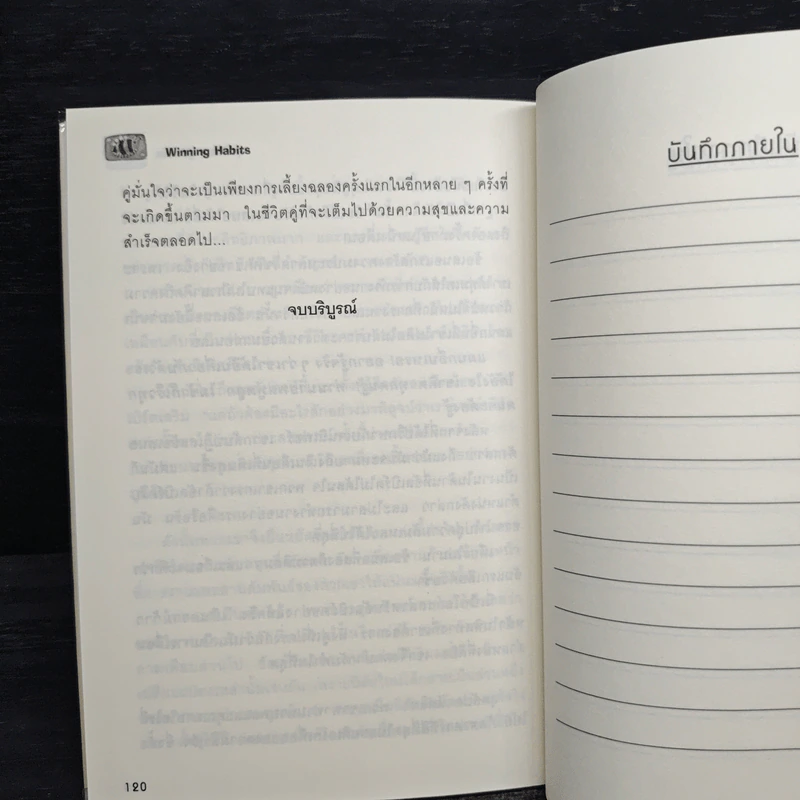 Winning Habits
คู่มั่นใจว่าจะเป็นเพียงการเลี้ยงฉลองครั้งแรกในอีกหลาย ๆ ครั้งที่
จะเกิดขึ้นตามมา ในชีวิตคู่ที่จะเต็มไปด้วยความสุขและความ
สำเร็จตลอดไป...
จบบริบูรณ์
120
บันทึกภายใน